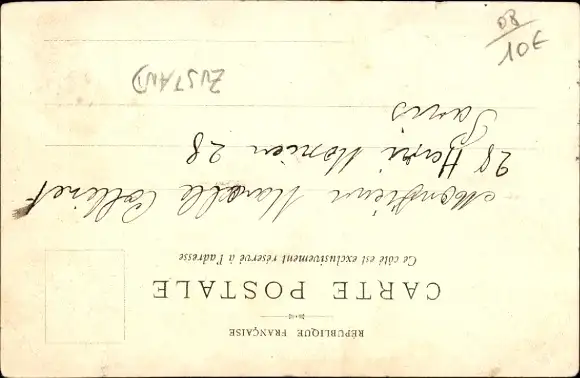 RÉPUBLIQUE FRANÇAISE
CARTE POSTALE
Ce côté est exclusivement réservé à l'adresse
Monsieur Marcelle Collinet
28 Henri Monnier 28
Paris
(ZUSTAND)
10€
08